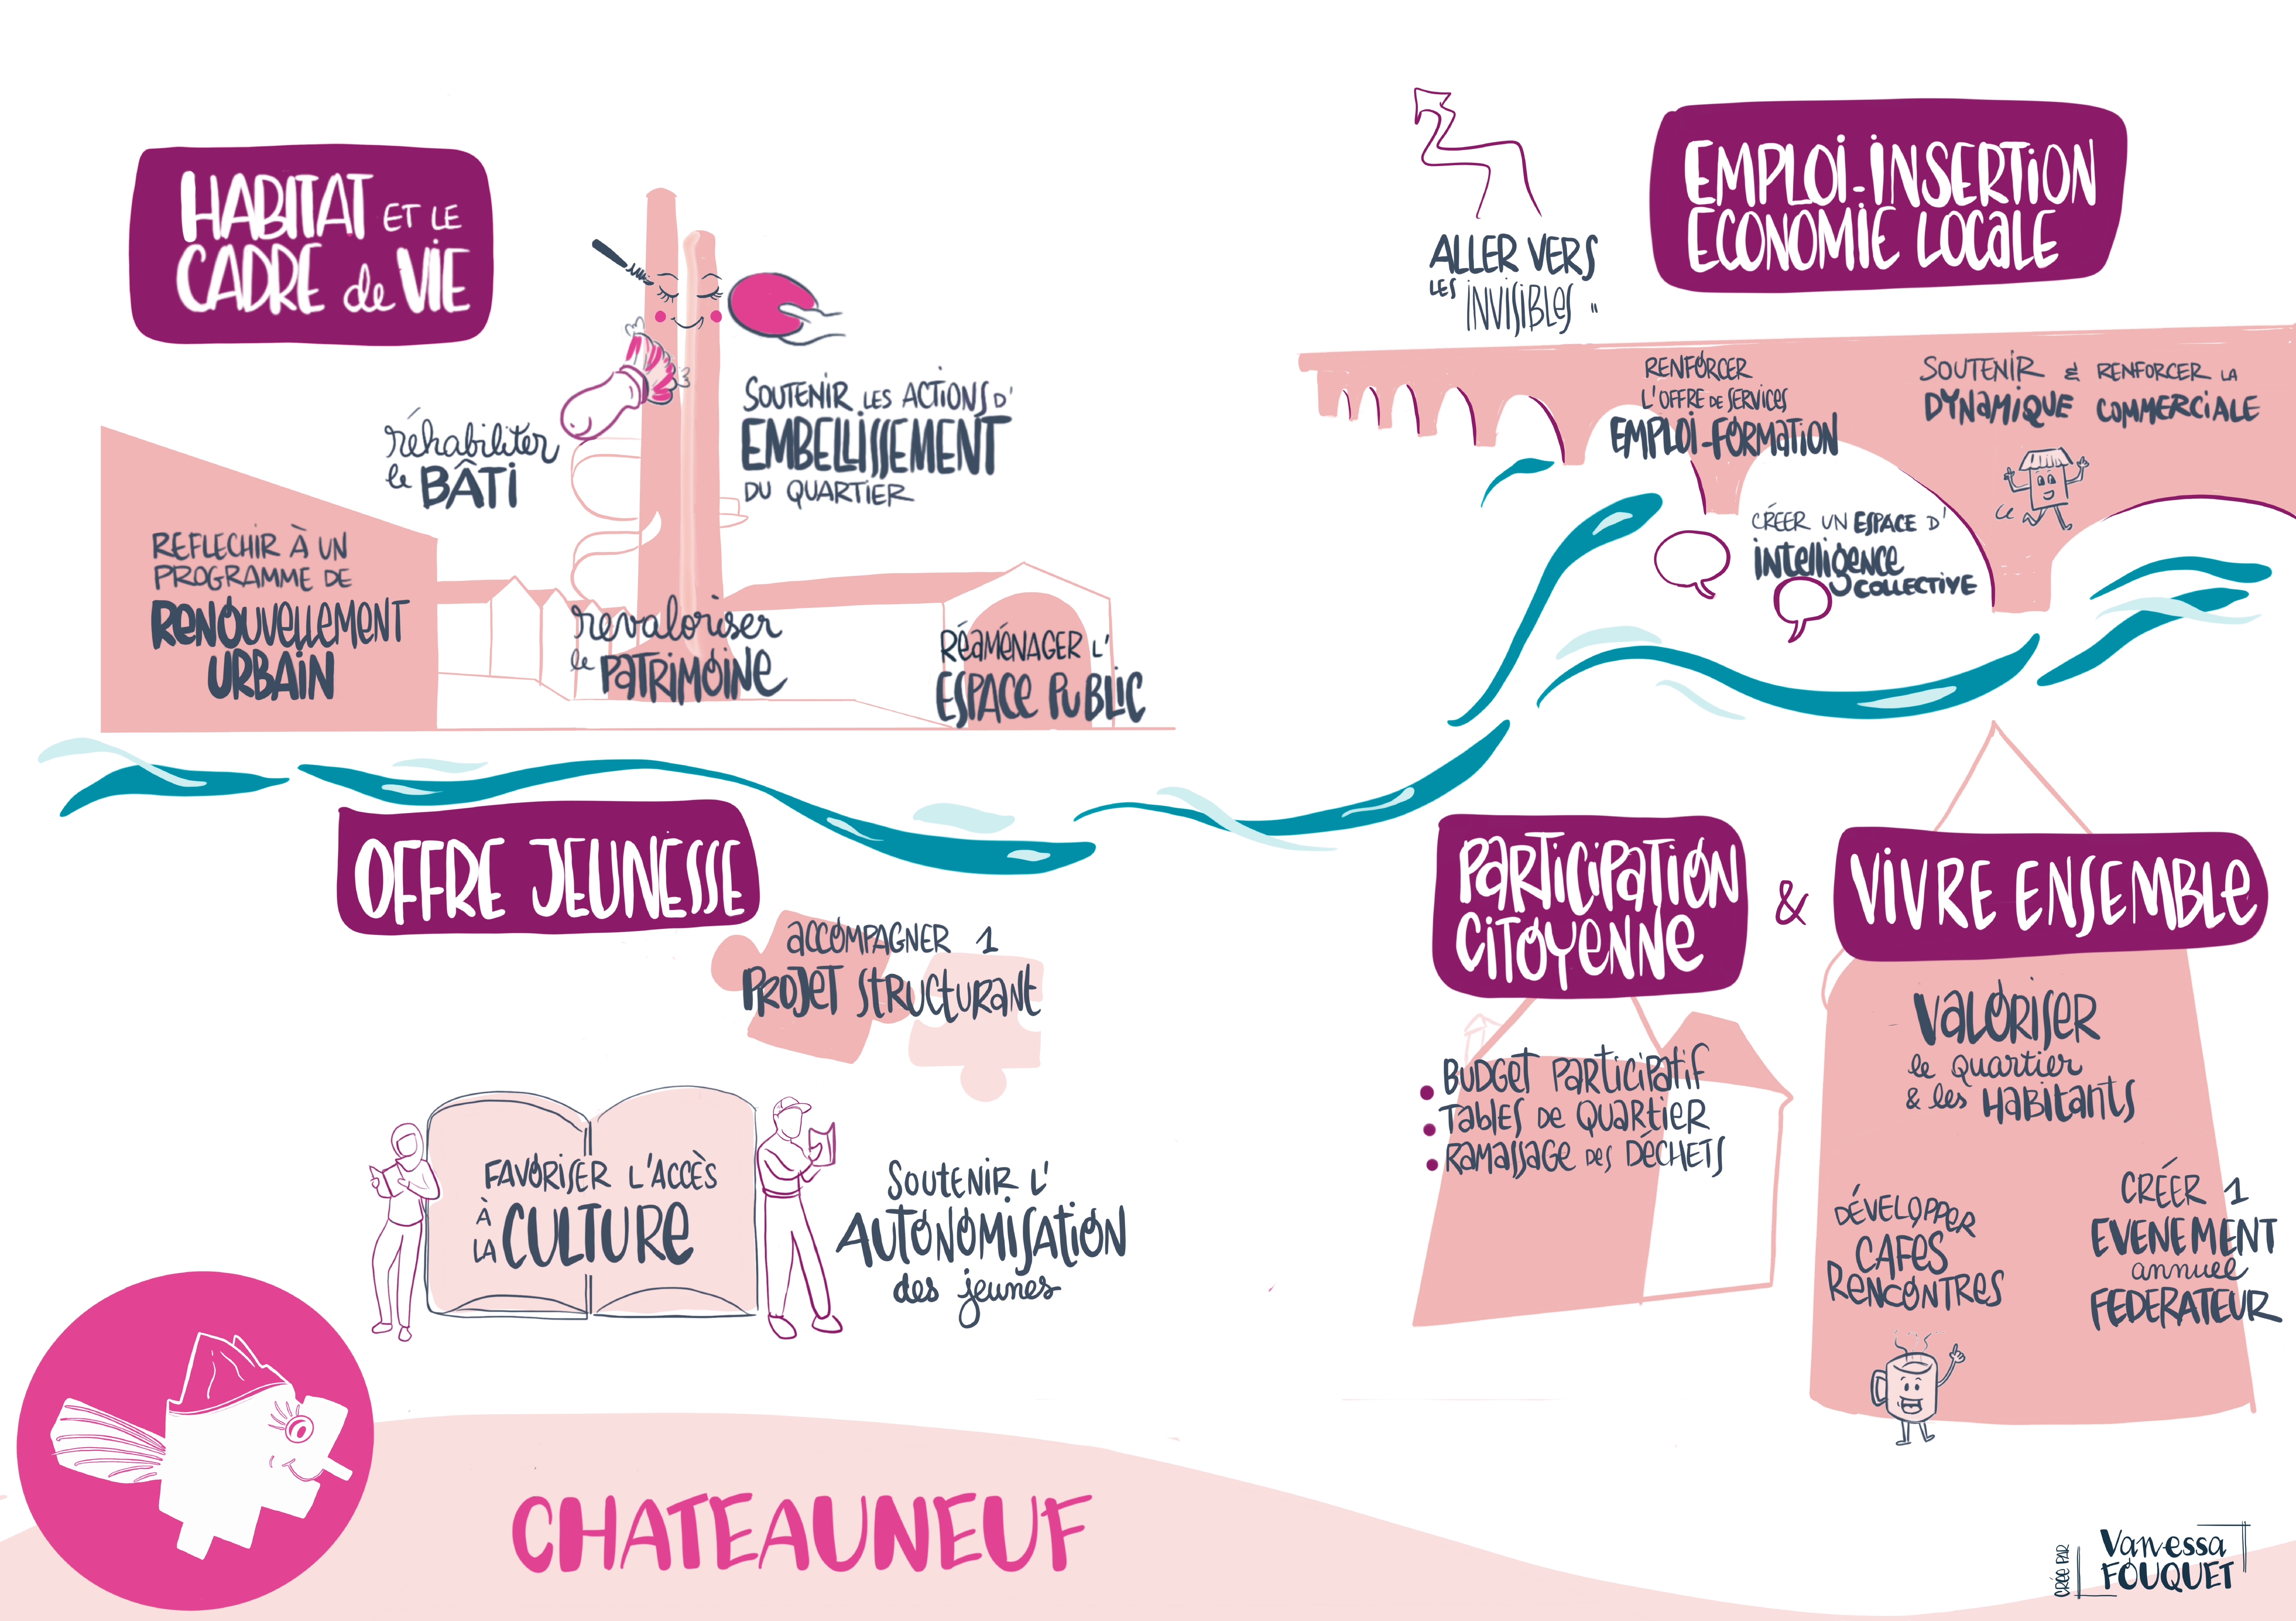 HABITAT ET LE
CADRE de VIE
réhabiliter
le BÂTI
SOUTENIR LES ACTIONS D'
EMBELLISSEMENT
DU QUARTIER
REFLECHIR À UN
PROGRAMME DE
RENOUVELLEMENT
URBAIN
revaloriser
le PATRIMOINE
RÉAMÉNAGER L'
ESPACE PUBLIC
EMPLOI-INSERTION
ECONOMIE LOCALE
ALLER VERS
LES INVISIBLES "
RENFORCER
L'OFFRE DE SERVICES
EMPLOI-FORMATION
SOUTENIR & RENFORCER LA
DYNAMIQUE COMMERCIALE
CRÉER UN ESPACE D'
INTELLIGENCE
COLLECTIVE
OFFRE JEUNESSE
ACCOMPAGNER 1
PROJET STRUCTURANT
FAVORISER L'ACCÈS
À
LA CULTURE
SOUTENIR L'
AUTONOMISATION
des jeunes
PARTICIPATION
CITOYENNE
& VIVRE ENSEMBLE
• BUDGET PARTICIPATIF
• TABLES DE QUARTIER
• RAMASSAGE DES DÉCHETS
VALORISER
le quartier
& les HABITANTS
DÉVELOPPER
CAFES
RENCONTRES
CRÉER 1
EVENEMENT
annuel
FEDERATEUR
CHATEAUNEUF
CRÉE PAR
Vanessa
FOUQUET